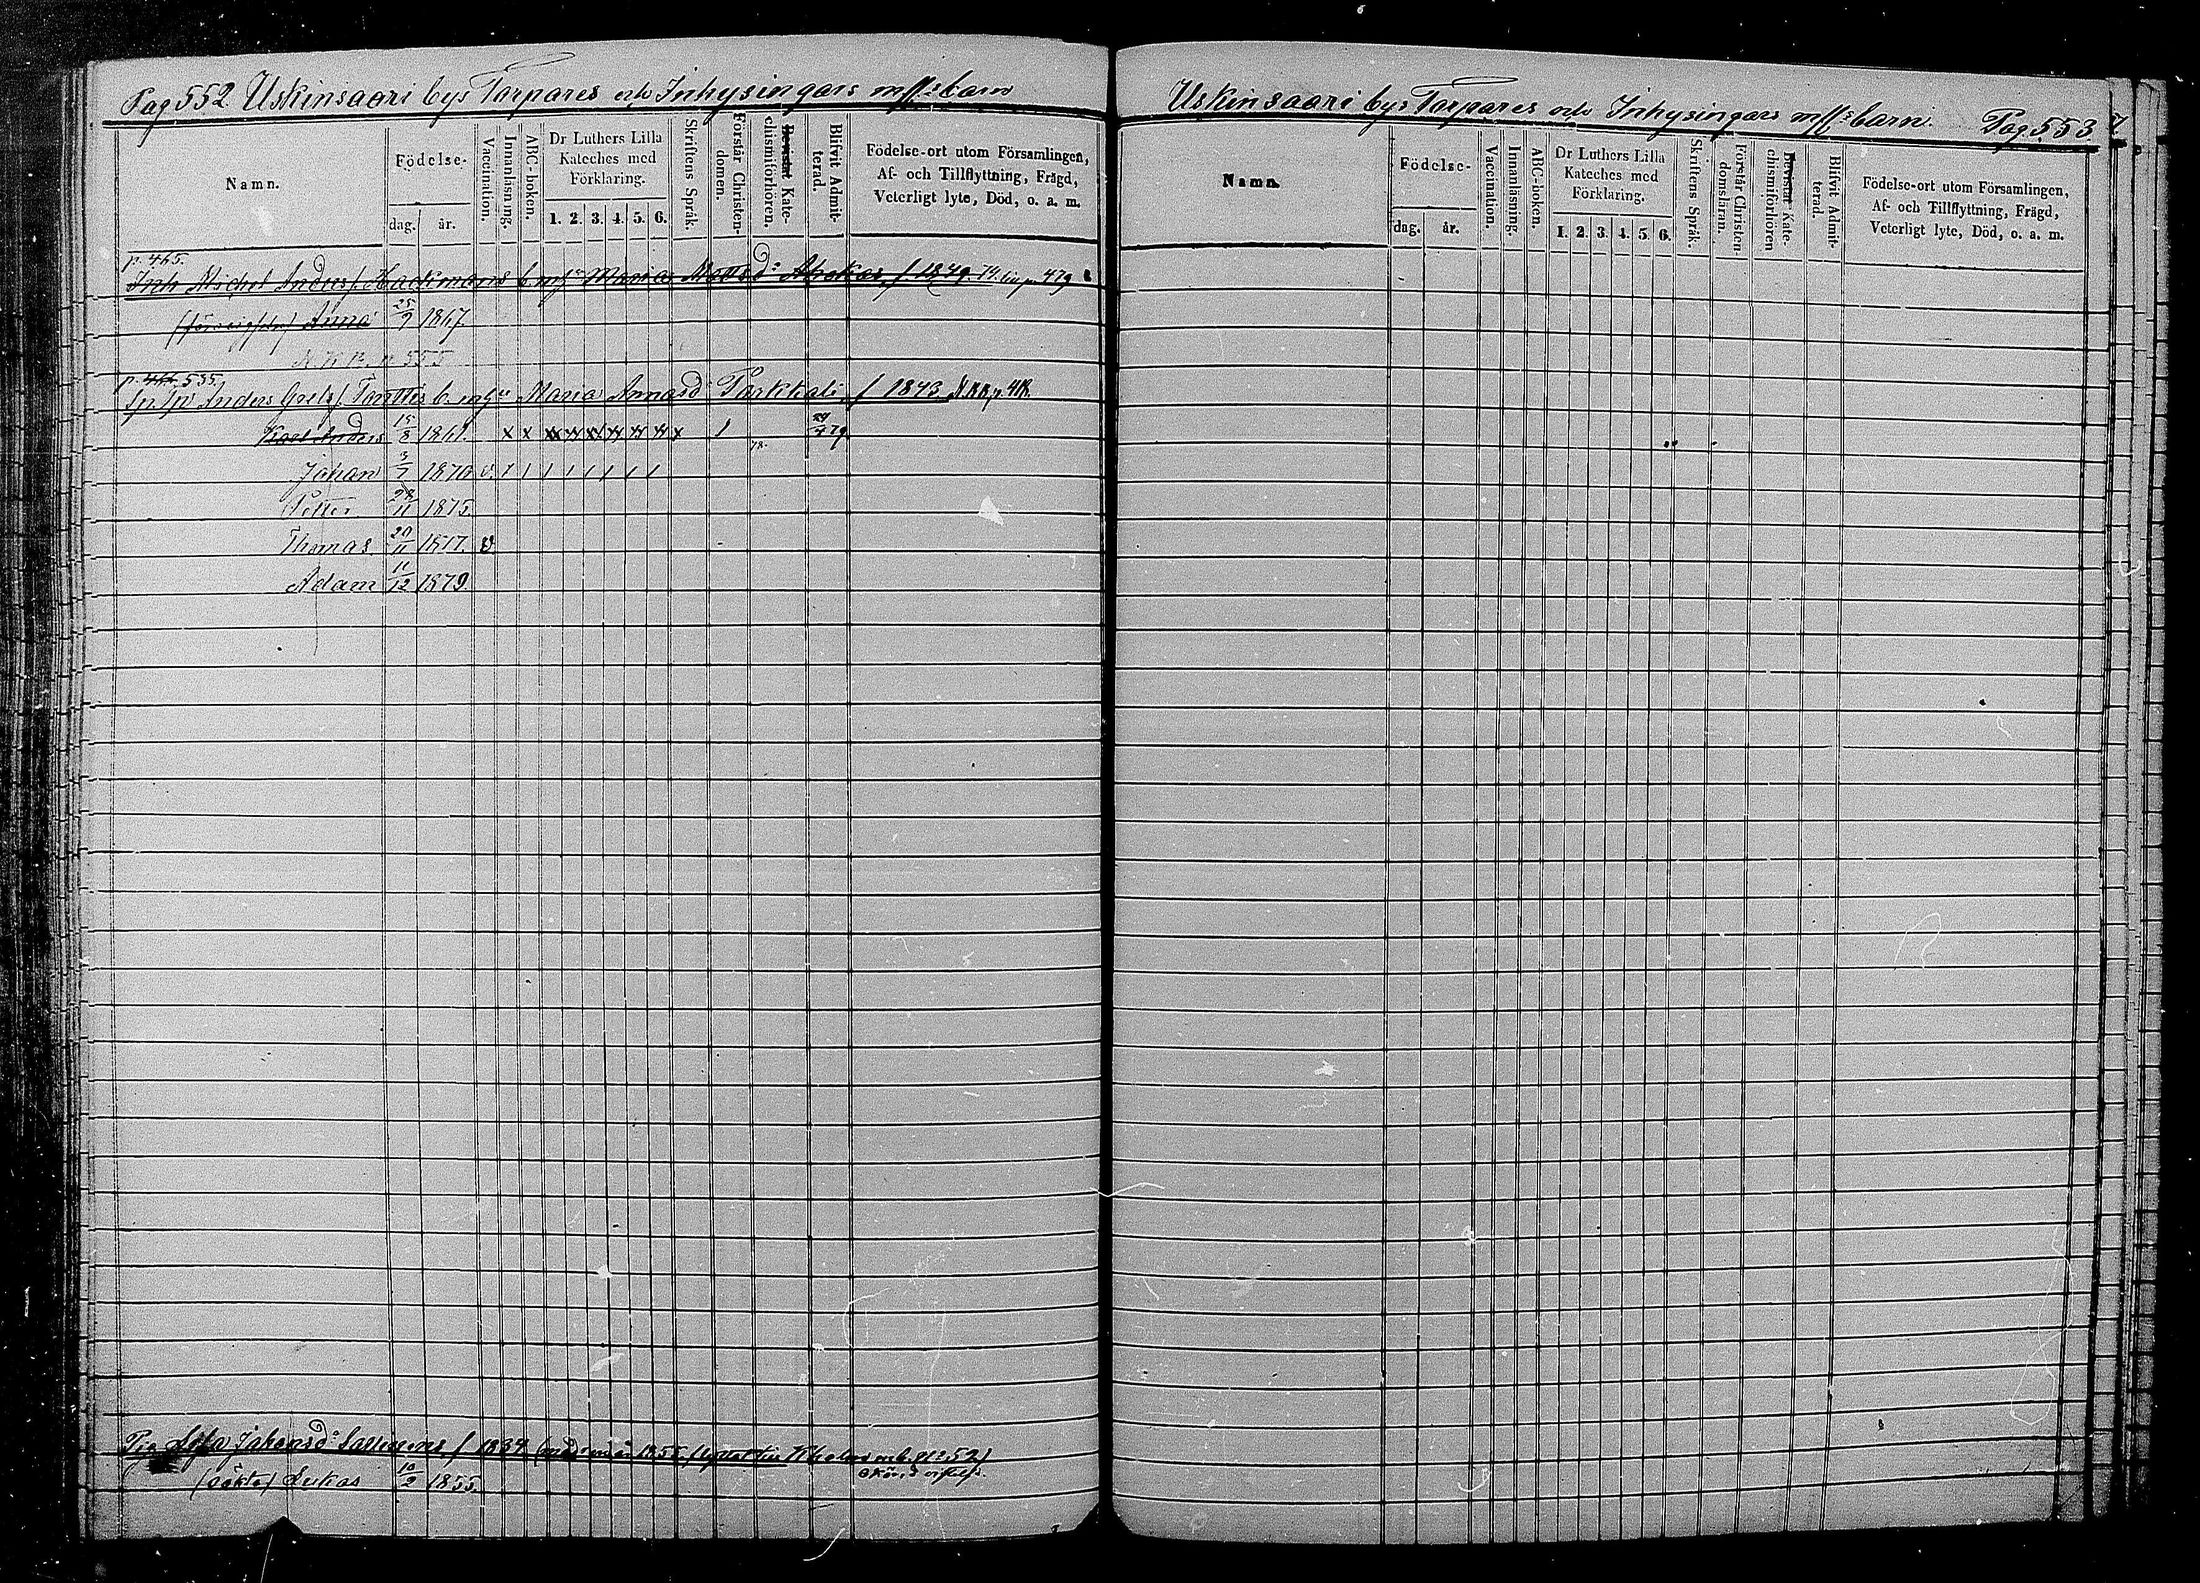 Pag 552 Uskinsaari bys Torpares och Inhysingars m ff: barn
Namn.
Födelse-
dag.
år.
Vaccination.
Innanläsning.
ABC-boken.
Dr Luthers Lilla
Kateches med
Förklaring.
1. 2. 3. 4. 5. 6.
Skriftens Språk.
Förstår Christen-
domen.
Bevistat Kate-
chismiförhören.
Blifvit Admit-
terad.
Födelse-ort utom Församlingen,
Af- och Tillflyttning, Frägd,
Veterligt lyte, Död, o. a. m.
p. 465.
Inh Michel Anders f. Hackmans b. m h. Maria Mattsd: f 1849. 74 p. 479
Anna 25/9 1867.
N.K.B. p 555
p. 466 535.
Anders Tanttis b. Maria Annasd: Parkkali, f 1843 N.K.B. p.
Karl Anders 15/8 1861. x x x x x x x x x 1 78. 79
Johan 3/7 1870 v. 1 1 1 1 1 1 1 1
Petter 28/11 1875.
Thomas 20/11 1877. v.
Adam 11/12 1879.
Pig. Jakobsd: f 1834 1855. flyttat till
(oäkta) Lukas 10/2 1855.
Uskinsaari bys Torpares och Inhysingars m ff: barn. Pag. 553
Namn.
Födelse-
dag.
år.
Vaccination.
Innanläsning.
ABC-boken.
Dr Luthers Lilla
Kateches med
Förklaring.
1. 2. 3. 4. 5. 6.
Skriftens Språk.
Förstår Christen-
domsläran.
Bevistat Kate-
chismiförhören
Blifvit Admit-
terad.
Födelse-ort utom Församlingen,
Af- och Tillflyttning, Frägd,
Veterligt lyte, Död, o. a. m.